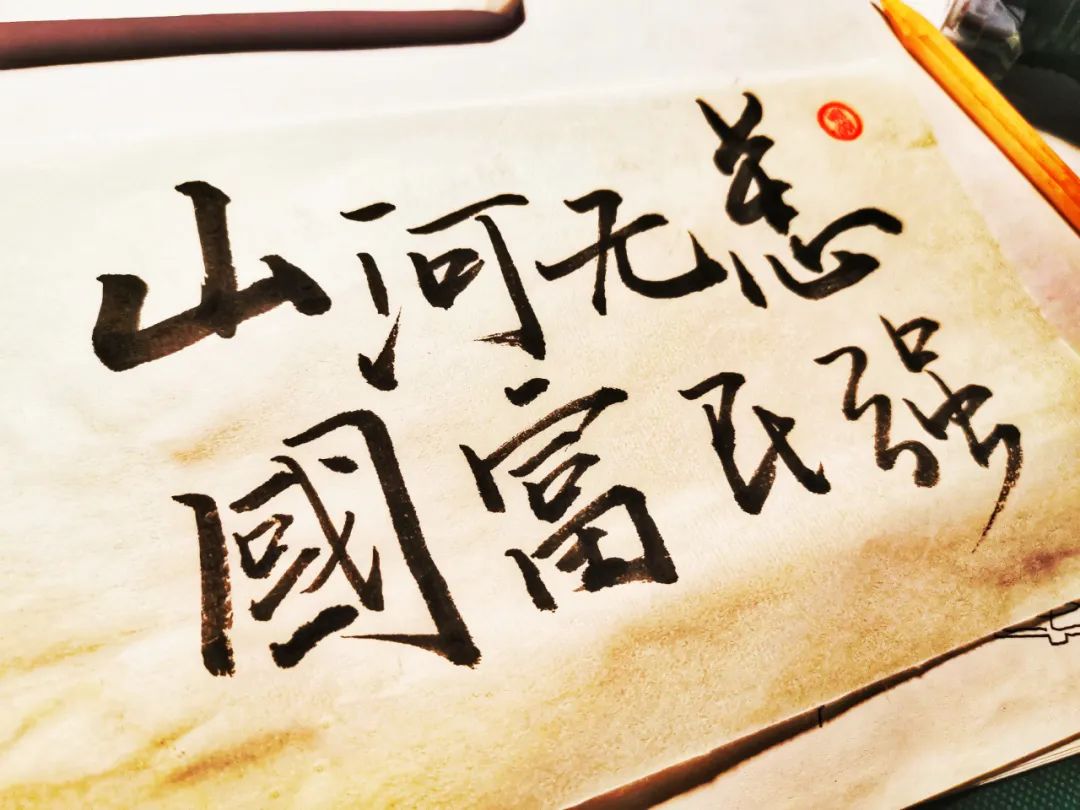 山河无恙
國富民强